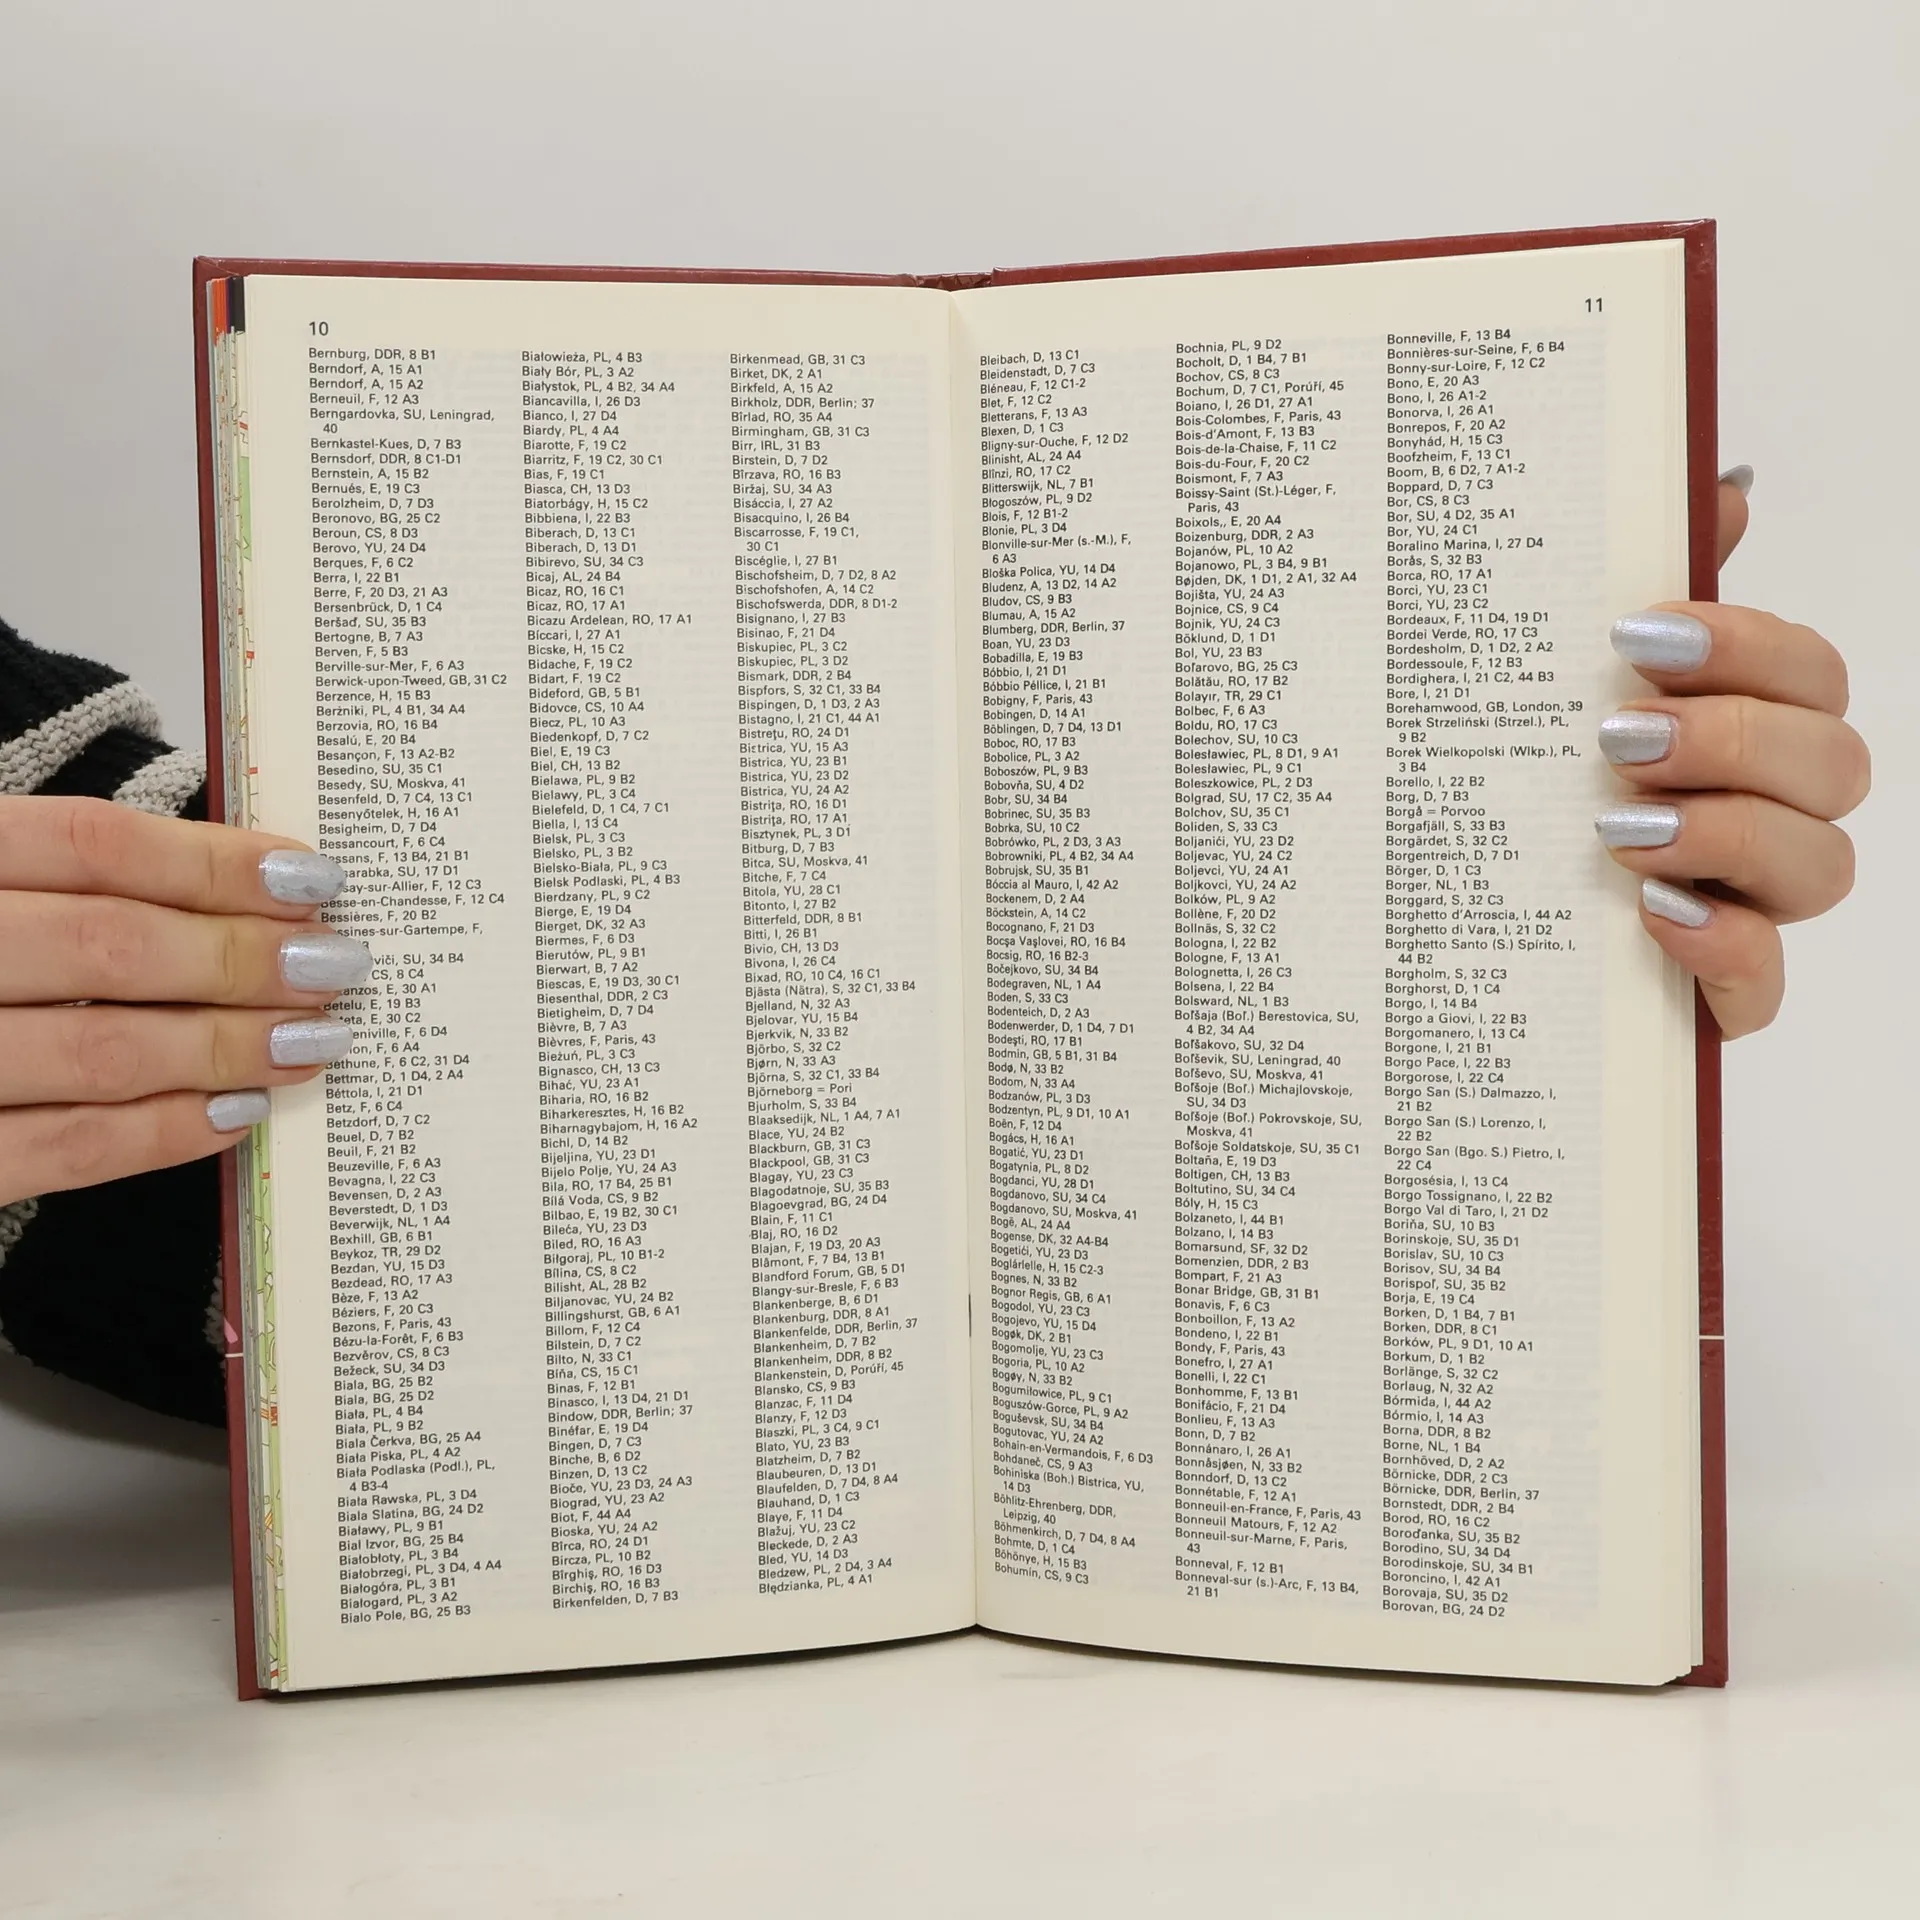 10
Bernburg, DDR, 8 B1
Berndorf, A, 15 A1
Berndorf, A, 15 A2
Berneuil, F, 12 A3
Berngardovka, SU, Leningrad,
40
Bernkastel-Kues, D, 7 B3
Bernsdorf, DDR, 8 C1-D1
Bernstein, A, 15 B2
Bernués, E, 19 C3
Berolzheim, D, 7 D3
Beronovo, BG, 25 C2
Beroun, CS, 8 D3
Berovo, YU, 24 D4
Berques, F, 6 C2
Berra, I, 22 B1
Berre, F, 20 D3, 21 A3
Bersenbrück, D, 1 C4
Beršaď, SU, 35 B3
Bertogne, B, 7 A3
Berven, F, 5 B3
Berville-sur-Mer, F, 6 A3
Berwick-upon-Tweed, GB, 31 C2
Berzence, H, 15 B3
Berżniki, PL, 4 B1, 34 A4
Berzovia, RO, 16 B4
Besalú, E, 20 B4
Besançon, F, 13 A2-B2
Besedino, SU, 35 C1
Besedy, SU, Moskva, 41
Besenfeld, D, 7 C4, 13 C1
Besenyőtelek, H, 16 A1
Besigheim, D, 7 D4
Bessancourt, F, 6 C4
F, 13 B4, 21 B1
SU, 17 D1
F, 12 C3
Besse-en-Chandesse, F, 12 C4
Bessières, F, 20 B2
F,
SU, 34 B4
CS, 8 C4
E, 30 A1
Betelu, E, 19 B3
E, 30 C2
F, 6 D4
F, 6 A4
Béthune, F, 6 C2, 31 D4
Bettmar, D, 1 D4, 2 A4
Béttola, I, 21 D1
Betz, F, 6 C4
Betzdorf, D, 7 C2
Beuel, D, 7 B2
Beuil, F, 21 B2
Beuzeville, F, 6 A3
Bevagna, I, 22 C3
Bevensen, D, 2 A3
Beverstedt, D, 1 D3
Beverwijk, NL, 1 A4
Bexhill, GB, 6 B1
Beykoz, TR, 29 D2
Bezdan, YU, 15 D3
Bezdead, RO, 17 A3
Bèze, F, 13 A2
Béziers, F, 20 C3
Bezons, F, Paris, 43
Bézu-la-Forêt, F, 6 B3
Bezvěrov, CS, 8 C3
Bežeck, SU, 34 D3
Biala, BG, 25 B2
Biala, BG, 25 D2
Biała, PL, 4 B4
Biała, PL, 9 B2
Biala Čerkva, BG, 25 A4
Biała Piska, PL, 4 A2
Biała Podlaska (Podl.), PL,
4 B3-4
Biała Rawska, PL, 3 D4
Biala Slatina, BG, 24 D2
Białawy, PL, 9 B1
Bial Izvor, BG, 25 B4
Białobłoty, PL, 3 B4
Białobrzegi, PL, 3 D4, 4 A4
Białogóra, PL, 3 B1
Białogard, PL, 3 A2
Bialo Pole, BG, 25 B3
Białowieża, PL, 4 B3
Biały Bór, PL, 3 A2
Białystok, PL, 4 B2, 34 A4
Biancavilla, I, 26 D3
Bianco, I, 27 D4
Biardy, PL, 4 A4
Biarotte, F, 19 C2
Biarritz, F, 19 C2, 30 C1
Bias, F, 19 C1
Biasca, CH, 13 D3
Biatorbágy, H, 15 C2
Bibbiena, I, 22 B3
Biberach, D, 13 C1
Biberach, D, 13 D1
Bibirevo, SU, 34 C3
Bicaj, AL, 24 B4
Bicaz, RO, 16 C1
Bicaz, RO, 17 A1
Bicazu Ardelean, RO, 17 A1
Bíccari, I, 27 A1
Bicske, H, 15 C2
Bidache, F, 19 C2
Bidart, F, 19 C2
Bideford, GB, 5 B1
Bidovce, CS, 10 A4
Biecz, PL, 10 A3
Biedenkopf, D, 7 C2
Biel, E, 19 C3
Biel, CH, 13 B2
Bielawa, PL, 9 B2
Bielawy, PL, 3 C4
Bielefeld, D, 1 C4, 7 C1
Biella, I, 13 C4
Bielsk, PL, 3 C3
Bielsko, PL, 3 B2
Bielsko-Biała, PL, 9 C3
Bielsk Podlaski, PL, 4 B3
Bierdzany, PL, 9 C2
Bierge, E, 19 D4
Bierget, DK, 32 A3
Biermes, F, 6 D3
Bierutów, PL, 9 B1
Bierwart, B, 7 A2
Biescas, E, 19 D3, 30 C1
Biesenthal, DDR, 2 C3
Bietigheim, D, 7 D4
Bièvre, B, 7 A3
Bièvres, F, Paris, 43
Bieżuń, PL, 3 C3
Bignasco, CH, 13 C3
Bihać, YU, 23 A1
Biharia, RO, 16 B2
Biharkeresztes, H, 16 B2
Biharnagybajom, H, 16 A2
Bichl, D, 14 B2
Bijeljina, YU, 23 D1
Bijelo Polje, YU, 24 A3
Bila, RO, 17 B4, 25 B1
Bílá Voda, CS, 9 B2
Bilbao, E, 19 B2, 30 C1
Bileća, YU, 23 D3
Biled, RO, 16 A3
Biłgoraj, PL, 10 B1-2
Bílina, CS, 8 C2
Bilisht, AL, 28 B2
Biljanovac, YU, 24 B2
Billingshurst, GB, 6 A1
Billom, F, 12 C4
Bilstein, D, 7 C2
Bilto, N, 33 C1
Bíňa, CS, 15 C1
Binas, F, 12 B1
Binasco, I, 13 D4, 21 D1
Bindow, DDR, Berlin; 37
Binéfar, E, 19 D4
Bingen, D, 7 C3
Binche, B, 6 D2
Binzen, D, 13 C2
Bioče, YU, 23 D3, 24 A3
Biograd, YU, 23 A2
Biot, F, 44 A4
Bioska, YU, 24 A2
Bîrca, RO, 24 D1
Bircza, PL, 10 B2
Bîrghiş, RO, 16 D3
Birchiş, RO, 16 B3
Birkenfelden, D, 7 B3
Birkenmead, GB, 31 C3
Birket, DK, 2 A1
Birkfeld, A, 15 A2
Birkholz, DDR, Berlin; 37
Bîrlad, RO, 35 A4
Birmingham, GB, 31 C3
Birr, IRL, 31 B3
Birstein, D, 7 D2
Bîrzava, RO, 16 B3
Biržaj, SU, 34 A3
Bisáccia, I, 27 A2
Bisacquino, I, 26 B4
Biscarrosse, F, 19 C1,
30 C1
Biscéglie, I, 27 B1
Bischofsheim, D, 7 D2, 8 A2
Bischofshofen, A, 14 C2
Bischofswerda, DDR, 8 D1-2
Bisignano, I, 27 B3
Bisinao, F, 21 D4
Biskupiec, PL, 3 C2
Biskupiec, PL, 3 D2
Bismark, DDR, 2 B4
Bispfors, S, 32 C1, 33 B4
Bispingen, D, 1 D3, 2 A3
Bistagno, I, 21 C1, 44 A1
Bistreţu, RO, 24 D1
Bistrica, YU, 15 A3
Bistrica, YU, 23 B1
Bistrica, YU, 23 D2
Bistrica, YU, 24 A2
Bistriţa, RO, 16 D1
Bistriţa, RO, 17 A1
Bisztynek, PL, 3 D1
Bitburg, D, 7 B3
Bitca, SU, Moskva, 41
Bitche, F, 7 C4
Bitola, YU, 28 C1
Bitonto, I, 27 B2
Bitterfeld, DDR, 8 B1
Bitti, I, 26 B1
Bivio, CH, 13 D3
Bivona, I, 26 C4
Bixad, RO, 10 C4, 16 C1
Bjästa (Nätra), S, 32 C1, 33 B4
Bjelland, N, 32 A3
Bjelovar, YU, 15 B4
Bjerkvik, N, 33 B2
Björbo, S, 32 C2
Bjørn, N, 33 A3
Björna, S, 32 C1, 33 B4
Björneborg = Pori
Bjurholm, S, 33 B4
Blaaksedijk, NL, 1 A4, 7 A1
Blace, YU, 24 B2
Blackburn, GB, 31 C3
Blackpool, GB, 31 C3
Blagay, YU, 23 C3
Blagodatnoje, SU, 35 B3
Blagoevgrad, BG, 24 D4
Blain, F, 11 C1
Blaj, RO, 16 D2
Blajan, F, 19 D3, 20 A3
Blâmont, F, 7 B4, 13 B1
Blandford Forum, GB, 5 D1
Blangy-sur-Bresle, F, 6 B3
Blankenberge, B, 6 D1
Blankenburg, DDR, 8 A1
Blankenfelde, DDR, Berlin, 37
Blankenheim, D, 7 B2
Blankenheim, DDR, 8 B2
Blankenstein, D, Porúří, 45
Blansko, CS, 9 B3
Blanzac, F, 11 D4
Blanzy, F, 12 D3
Blaszki, PL, 3 C4, 9 C1
Blato, YU, 23 B3
Blatzheim, D, 7 B2
Blaubeuren, D, 13 D1
Blaufelden, D, 7 D4, 8 A4
Blauhand, D, 1 C3
Blaye, F, 11 D4
Blažuj, YU, 23 C2
Bleckede, D, 2 A3
Bled, YU, 14 D3
Bledzew, PL, 2 D4, 3 A4
Błędzianka, PL, 4 A1
11
Bleibach, D, 13 C1
Bleidenstadt, D, 7 C3
Bléneau, F, 12 C1-2
Blet, F, 12 C2
Bletterans, F, 13 A3
Blexen, D, 1 C3
Bligny-sur-Ouche, F, 12 D2
Blinisht, AL, 24 A4
Blînzi, RO, 17 C2
Blitterswijk, NL, 7 B1
Błogoszów, PL, 9 D2
Blois, F, 12 B1-2
Błonie, PL, 3 D4
Blonville-sur-Mer (s.-M.), F,
6 A3
Bloška Polica, YU, 14 D4
Bludenz, A, 13 D2, 14 A2
Bludov, CS, 9 B3
Blumau, A, 15 A2
Blumberg, DDR, Berlin, 37
Boan, YU, 23 D3
Bobadilla, E, 19 B3
Bóbbio, I, 21 D1
Bóbbio Péllice, I, 21 B1
Bobigny, F, Paris, 43
Bobingen, D, 14 A1
Böblingen, D, 7 D4, 13 D1
Boboc, RO, 17 B3
Bobolice, PL, 3 A2
Boboszów, PL, 9 B3
Bobovňa, SU, 4 D2
Bobr, SU, 34 B4
Bobrinec, SU, 35 B3
Bobrka, SU, 10 C2
Bobrówko, PL, 2 D3, 3 A3
Bobrowniki, PL, 4 B2, 34 A4
Bobrujsk, SU, 35 B1
Bóccia al Mauro, I, 42 A2
Bockenem, D, 2 A4
Böckstein, A, 14 C2
Bocognano, F, 21 D3
Bocşa Vaşlovei, RO, 16 B4
Bocsig, RO, 16 B2-3
Bočejkovo, SU, 34 B4
Bodegraven, NL, 1 A4
Boden, S, 33 C3
Bodenteich, D, 2 A3
Bodenwerder, D, 1 D4, 7 D1
Bodeşti, RO, 17 B1
Bodmin, GB, 5 B1, 31 B4
Bodø, N, 33 B2
Bodom, N, 33 A4
Bodzanów, PL, 3 D3
Bodzentyn, PL, 9 D1, 10 A1
Boën, F, 12 D4
Bogács, H, 16 A1
Bogatić, YU, 23 D1
Bogatynia, PL, 8 D2
Bogdanci, YU, 28 D1
Bogdanovo, SU, 34 C4
Bogdanovo, SU, Moskva, 41
Bogë, AL, 24 A4
Bogense, DK, 32 A4-B4
Bogetići, YU, 23 D3
Boglárlelle, H, 15 C2-3
Bognes, N, 33 B2
Bognor Regis, GB, 6 A1
Bogodol, YU, 23 C3
Bogojevo, YU, 15 D4
Bogøk, DK, 2 B1
Bogomolje, YU, 23 C3
Bogoria, PL, 10 A2
Bogøy, N, 33 B2
Bogumiłowice, PL, 9 C1
Boguszów-Gorce, PL, 9 A2
Boguševsk, SU, 34 B4
Bogutovac, YU, 24 A2
Bohain-en-Vermandois, F, 6 D3
Bohdaneč, CS, 9 A3
Bohiniska (Boh.) Bistrica, YU,
14 D3
Böhlitz-Ehrenberg, DDR,
Leipzig, 40
Böhmenkirch, D, 7 D4, 8 A4
Bohmte, D, 1 C4
Böhönye, H, 15 B3
Bohumín, CS, 9 C3
Bochnia, PL, 9 D2
Bocholt, D, 1 B4, 7 B1
Bochov, CS, 8 C3
Bochum, D, 7 C1, Porúří, 45
Boiano, I, 26 D1, 27 A1
Bois-Colombes, F, Paris, 43
Bois-d'Amont, F, 13 B3
Bois-de-la-Chaise, F, 11 C2
Bois-du-Four, F, 20 C2
Boismont, F, 7 A3
Boissy-Saint (St.)-Léger, F,
Paris, 43
Boixols,, E, 20 A4
Boizenburg, DDR, 2 A3
Bojanów, PL, 10 A2
Bojanowo, PL, 3 B4, 9 B1
Bøjden, DK, 1 D1, 2 A1, 32 A4
Bojišta, YU, 24 A3
Bojnice, CS, 9 C4
Bojnik, YU, 24 C3
Böklund, D, 1 D1
Bol, YU, 23 B3
Boľarovo, BG, 25 C3
Bolătău, RO, 17 B2
Bolayır, TR, 29 C1
Bolbec, F, 6 A3
Boldu, RO, 17 C3
Bolechov, SU, 10 C3
Bolesławiec, PL, 8 D1, 9 A1
Bolesławiec, PL, 9 C1
Boleszkowice, PL, 2 D3
Bolgrad, SU, 17 C2, 35 A4
Bolchov, SU, 35 C1
Boliden, S, 33 C3
Boljanići, YU, 23 D2
Boljevac, YU, 24 C2
Boljevci, YU, 24 A1
Boljkovci, YU, 24 A2
Bolków, PL, 9 A2
Bollène, F, 20 D2
Bollnäs, S, 32 C2
Bologna, I, 22 B2
Bologne, F, 13 A1
Bolognetta, I, 26 C3
Bolsena, I, 22 B4
Bolsward, NL, 1 B3
Boľšaja (Boľ.) Berestovica, SU,
4 B2, 34 A4
Boľšakovo, SU, 32 D4
Boľševik, SU, Leningrad, 40
Boľševo, SU, Moskva, 41
Boľšoje (Boľ.) Michajlovskoje,
SU, 34 D3
Boľšoje (Boľ.) Pokrovskoje, SU,
Moskva, 41
Boľšoje Soldatskoje, SU, 35 C1
Boltaña, E, 19 D3
Boltigen, CH, 13 B3
Boltutino, SU, 34 C4
Bóly, H, 15 C3
Bolzaneto, I, 44 B1
Bolzano, I, 14 B3
Bomarsund, SF, 32 D2
Bomenzien, DDR, 2 B3
Bompart, F, 21 A3
Bonar Bridge, GB, 31 B1
Bonavis, F, 6 C3
Bonboillon, F, 13 A2
Bondeno, I, 22 B1
Bondy, F, Paris, 43
Bonefro, I, 27 A1
Bonelli, I, 22 C1
Bonhomme, F, 13 B1
Bonifácio, F, 21 D4
Bonlieu, F, 13 A3
Bonn, D, 7 B2
Bonnánaro, I, 26 A1
Bonnåsjøen, N, 33 B2
Bonndorf, D, 13 C2
Bonnétable, F, 12 A1
Bonneuil-en-France, F, Paris, 43
Bonneuil Matours, F, 12 A2
Bonneuil-sur-Marne, F, Paris,
43
Bonneval, F, 12 B1
Bonneval-sur (s.)-Arc, F, 13 B4,
21 B1
Bonneville, F, 13 B4
Bonnières-sur-Seine, F, 6 B4
Bonny-sur-Loire, F, 12 C2
Bono, E, 20 A3
Bono, I, 26 A1-2
Bonorva, I, 26 A1
Bonrepos, F, 20 A2
Bonyhád, H, 15 C3
Boofzheim, F, 13 C1
Boom, B, 6 D2, 7 A1-2
Boppard, D, 7 C3
Bor, CS, 8 C3
Bor, SU, 4 D2, 35 A1
Bor, YU, 24 C1
Boralino Marina, I, 27 D4
Borås, S, 32 B3
Borca, RO, 17 A1
Borci, YU, 23 C1
Borci, YU, 23 C2
Bordeaux, F, 11 D4, 19 D1
Bordei Verde, RO, 17 C3
Bordesholm, D, 1 D2, 2 A2
Bordessoule, F, 12 B3
Bordighera, I, 21 C2, 44 B3
Bore, I, 21 D1
Borehamwood, GB, London, 39
Borek Strzeliński (Strzel.), PL,
9 B2
Borek Wielkopolski (Wlkp.), PL,
3 B4
Borello, I, 22 B2
Borg, D, 7 B3
Borgå = Porvoo
Borgafjäll, S, 33 B3
Borgärdet, S, 32 C2
Borgentreich, D, 7 D1
Börger, D, 1 C3
Borger, NL, 1 B3
Borggard, S, 32 C3
Borghetto d'Arroscia, I, 44 A2
Borghetto di Vara, I, 21 D2
Borghetto Santo (S.) Spírito, I,
44 B2
Borgholm, S, 32 C3
Borghorst, D, 1 C4
Borgo, I, 14 B4
Borgo a Giovi, I, 22 B3
Borgomanero, I, 13 C4
Borgone, I, 21 B1
Borgo Pace, I, 22 B3
Borgorose, I, 22 C4
Borgo San (S.) Dalmazzo, I,
21 B2
Borgo San (S.) Lorenzo, I,
22 B2
Borgo San (Bgo. S.) Pietro, I,
22 C4
Borgosésia, I, 13 C4
Borgo Tossignano, I, 22 B2
Borgo Val di Taro, I, 21 D2
Boriňa, SU, 10 B3
Borinskoje, SU, 35 D1
Borislav, SU, 10 C3
Borisov, SU, 34 B4
Borispoľ, SU, 35 B2
Borja, E, 19 C4
Borken, D, 1 B4, 7 B1
Borken, DDR, 8 C1
Borków, PL, 9 D1, 10 A1
Borkum, D, 1 B2
Borlänge, S, 32 C2
Borlaug, N, 32 A2
Bórmida, I, 44 A2
Bórmio, I, 14 A3
Borna, DDR, 8 B2
Borne, NL, 1 B4
Bornhöved, D, 2 A2
Börnicke, DDR, 2 C3
Börnicke, DDR, Berlin, 37
Bornstedt, DDR, 2 B4
Borod, RO, 16 C2
Boroďanka, SU, 35 B2
Borodino, SU, 34 D4
Borodinskoje, SU, 34 B1
Boroncino, I, 42 A1
Borovaja, SU, 35 D2
Borovan, BG, 24 D2